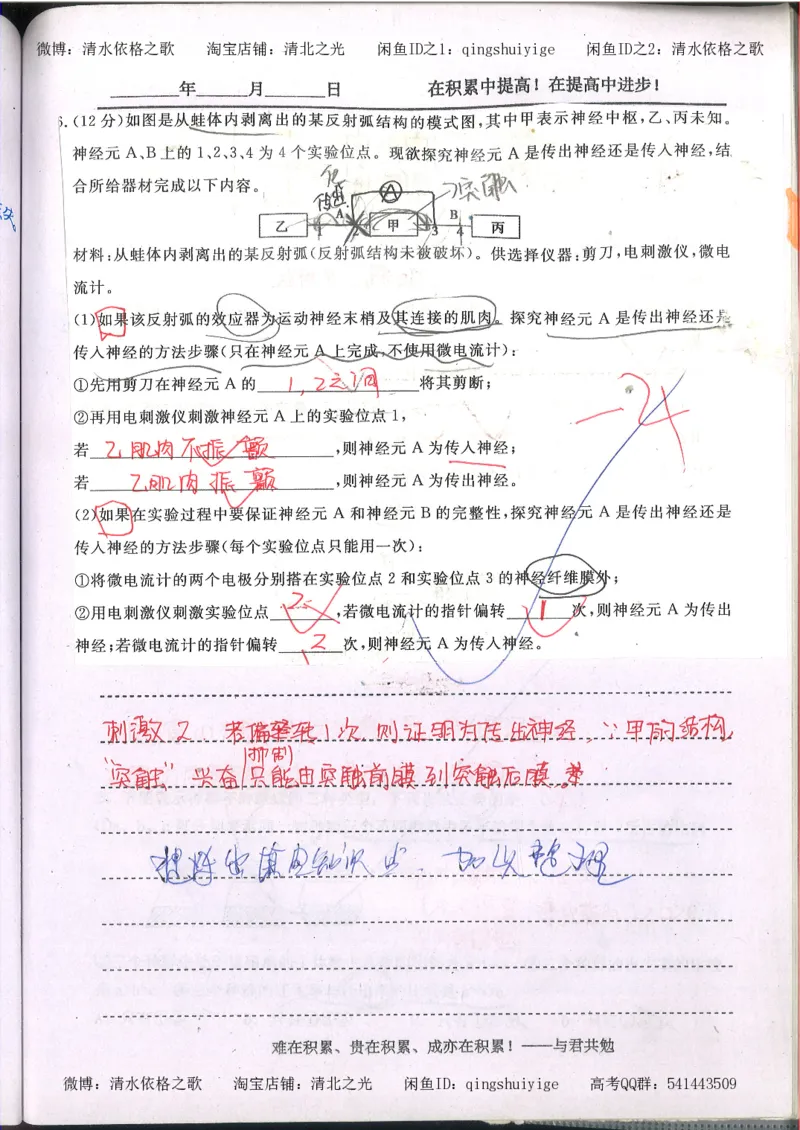 微博：清水依格之歌 淘宝店铺：清北之光 闲鱼ID之1：qingshuiyige 闲鱼ID之2：清水依格之歌
年 月 日 在积累中提高！在提高中进步！
6.(12分)如图是从蛙体内剥离出的某反射弧结构的模式图,其中甲表示神经中枢,乙、丙未知。
神经元A、B上的1、2、3、4为4个实验位点。现欲探究神经元A是传出神经还是传入神经,结
合所给器材完成以下内容。
A 突触
A B
乙 甲 3 4 丙
材料:从蛙体内剥离出的某反射弧(反射弧结构未被破坏)。供选择仪器:剪刀,电刺激仪,微电
流计。
(1)如果该反射弧的效应器为运动神经末梢及其连接的肌肉。探究神经元A是传出神经还是
传入神经的方法步骤(只在神经元A上完成,不使用微电流计):
①先用剪刀在神经元A的 1,2之间 将其剪断;
②再用电刺激仪刺激神经元A上的实验位点1,
若 乙肌肉不振颤 ,则神经元A为传入神经;
若 乙肌肉振颤 ,则神经元A为传出神经。
-24
(2)如果在实验过程中要保证神经元A和神经元B的完整性,探究神经元A是传出神经还是
传入神经的方法步骤(每个实验位点只能用一次):
①将微电流计的两个电极分别搭在实验位点2和实验位点3的神经纤维膜外;
②用电刺激仪刺激实验位点 2 ,若微电流计的指针偏转 1 次,则神经元A为传出
神经;若微电流计的指针偏转 2 次,则神经元A为传入神经。
1
刺激2,若偏转1次,则证明为传出神经,∵甲有结构
抑制
“突触”兴奋只能由突触前膜到突触后膜
知识 加以整理
难在积累、贵在积累、成亦在积累！——与君共勉
微博：清水依格之歌 淘宝店铺：清北之光 闲鱼ID：qingshuiyige 高考QQ群：541443509